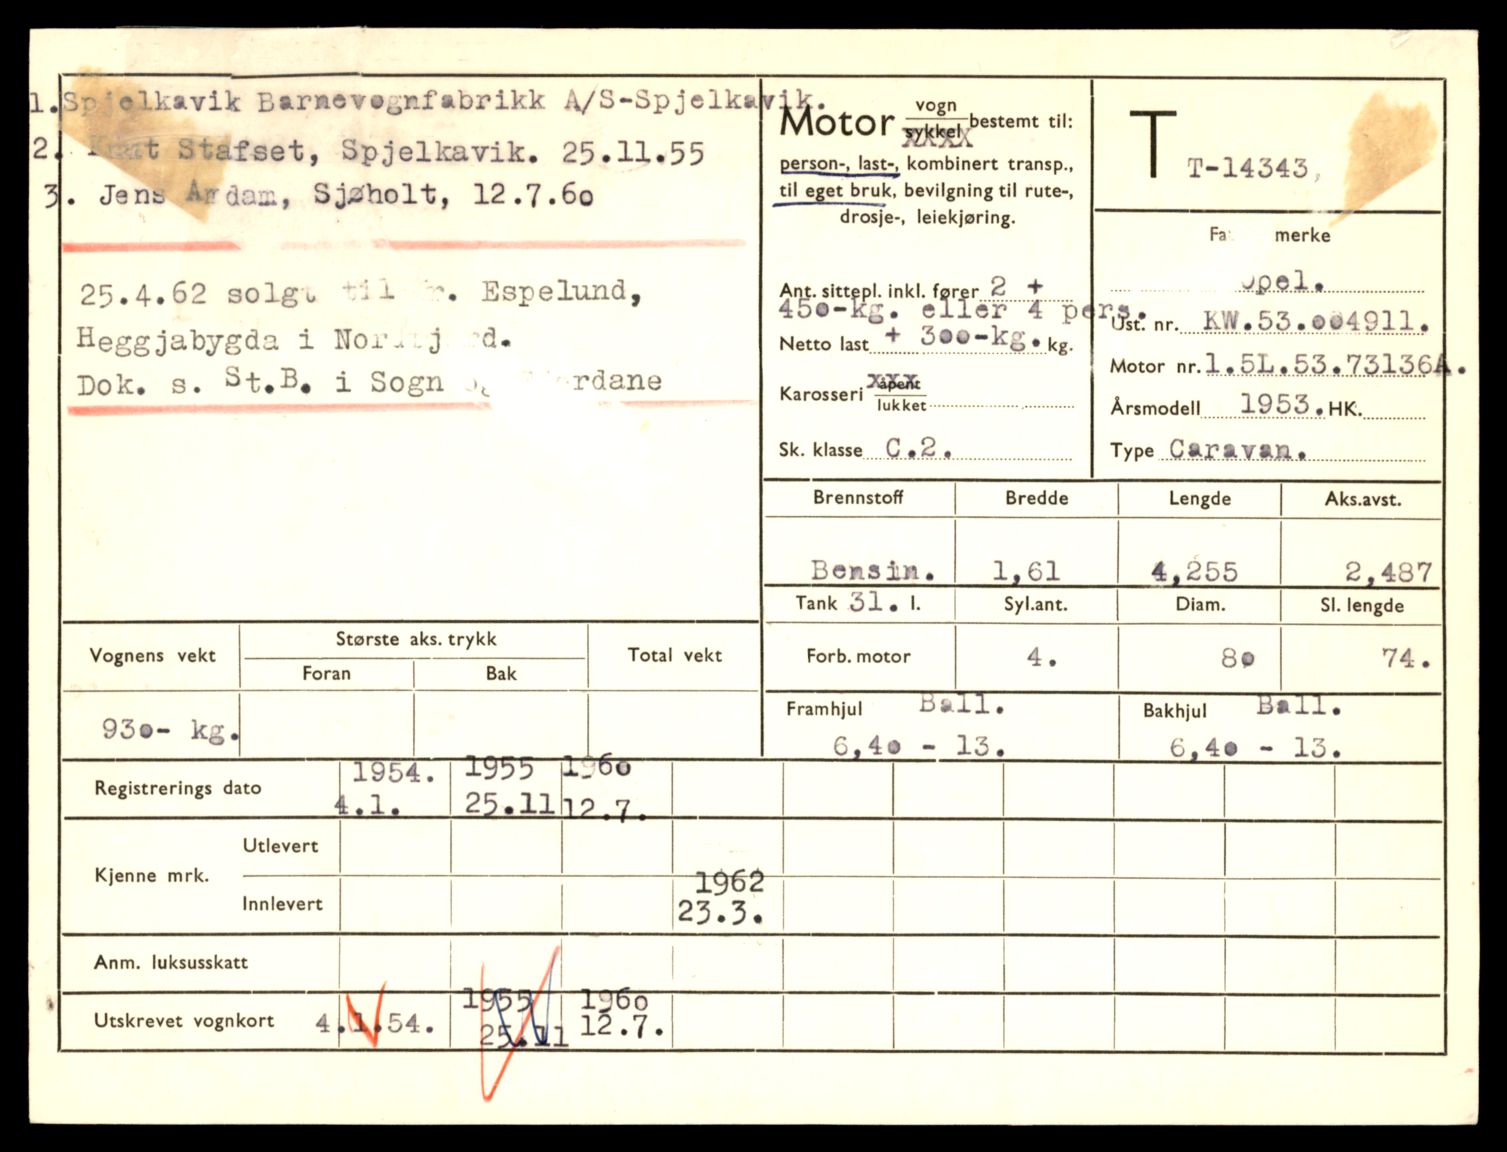 1. Spjelkavik Barnevognfabrikk A/S-Spjelkavik.
2. Stafset, Spjelkavik. 25.11.55
3. Jens Sjøholt, 12.7.60
25.4.62 solgt til Espelund,
Heggjabygda i
Dok. s. St.B. i Sogn
Motor vogn sykkel bestemt til:
person-, last-, kombinert transp.,
til eget bruk, bevilgning til rute-,
drosje-, leiekjøring.
Ant. sittepl. inkl. fører 2 +
450-kg. eller 4 pers.
Netto last + 300-kg. kg.
Karosseri åpent lukket
Sk. klasse C.2.
T T-14343,
merke
Opel.
Ust. nr. KW.53.004911.
Motor nr. 1.5L.53.73136A.
Årsmodell 1953. HK.
Type Caravan.
Brennstoff Bredde Lengde Aks.avst.
Bensin. 1,61 4,255 2,487
Tank 31. l. Syl.ant. Diam. Sl. lengde
Forb. motor 4. 80 74.
Framhjul Ball. Bakhjul Ball.
6,40 - 13. 6,40 - 13.
Vognens vekt Største aks. trykk Total vekt
Foran Bak
930- kg.
Registrerings dato 1954. 1955 1960
4.1. 25.11 12.7.
Kjenne mrk. Utlevert
Innlevert 1962
23.3.
Anm. luksusskatt
Utskrevet vognkort 4.1.54. 1955 1960
25.11 12.7.